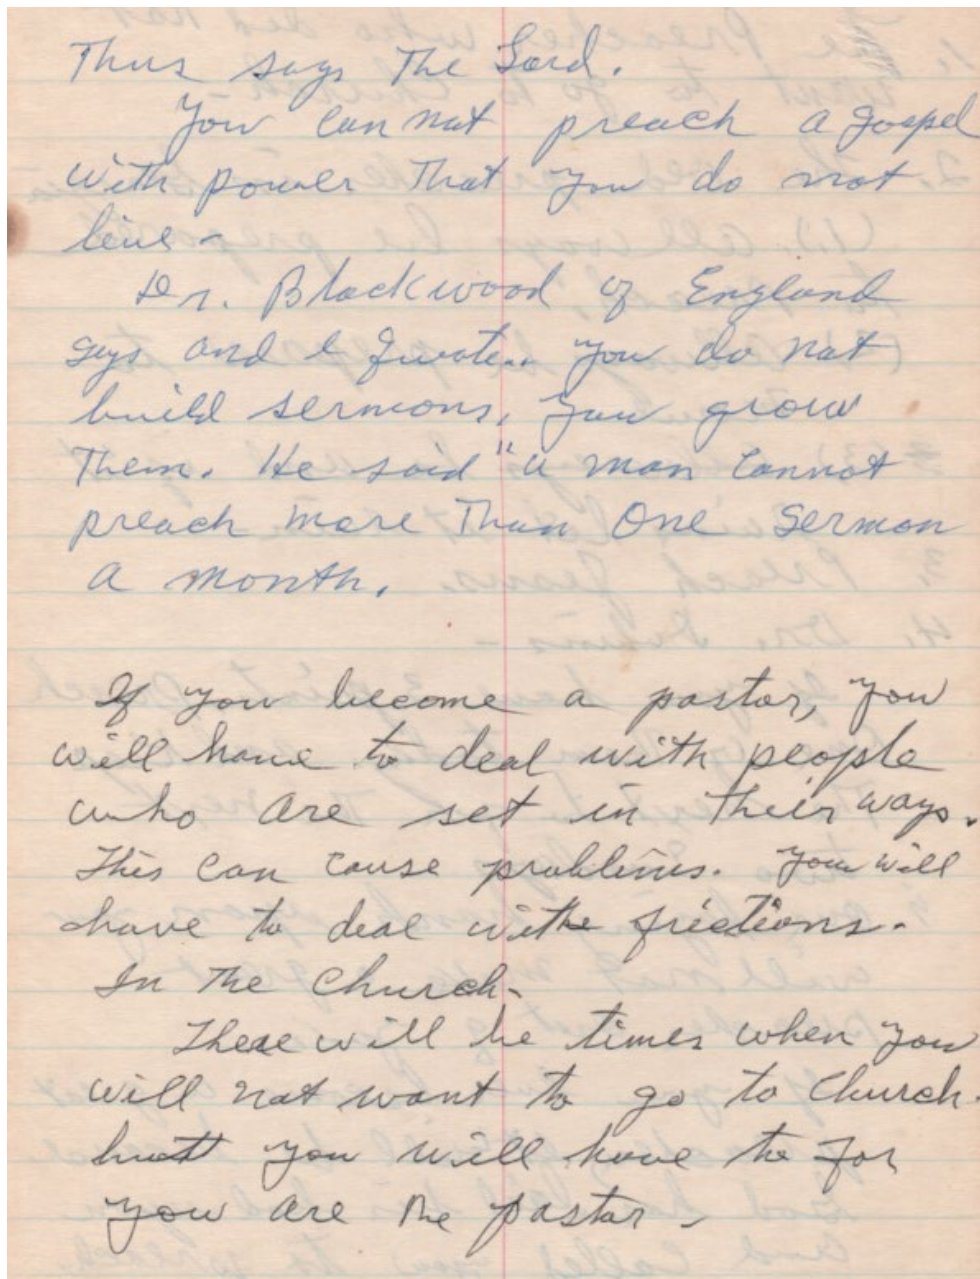 Thus says The Lord.
You can not preach a gospel
with power That you do not
live -
Dr. Blackwood of England
says and I Quote.. you do not
build sermons, you grow
Them. He said "a man cannot
preach more Than One Sermon
a month.
If you become a pastor, you
will have to deal with people
who are set in their ways.
This can cause problems. You will
have to deal withe frictions.
In The Church -
There will be times when you
will not want to go to Church.
butt you will have to for
you are The pastor -